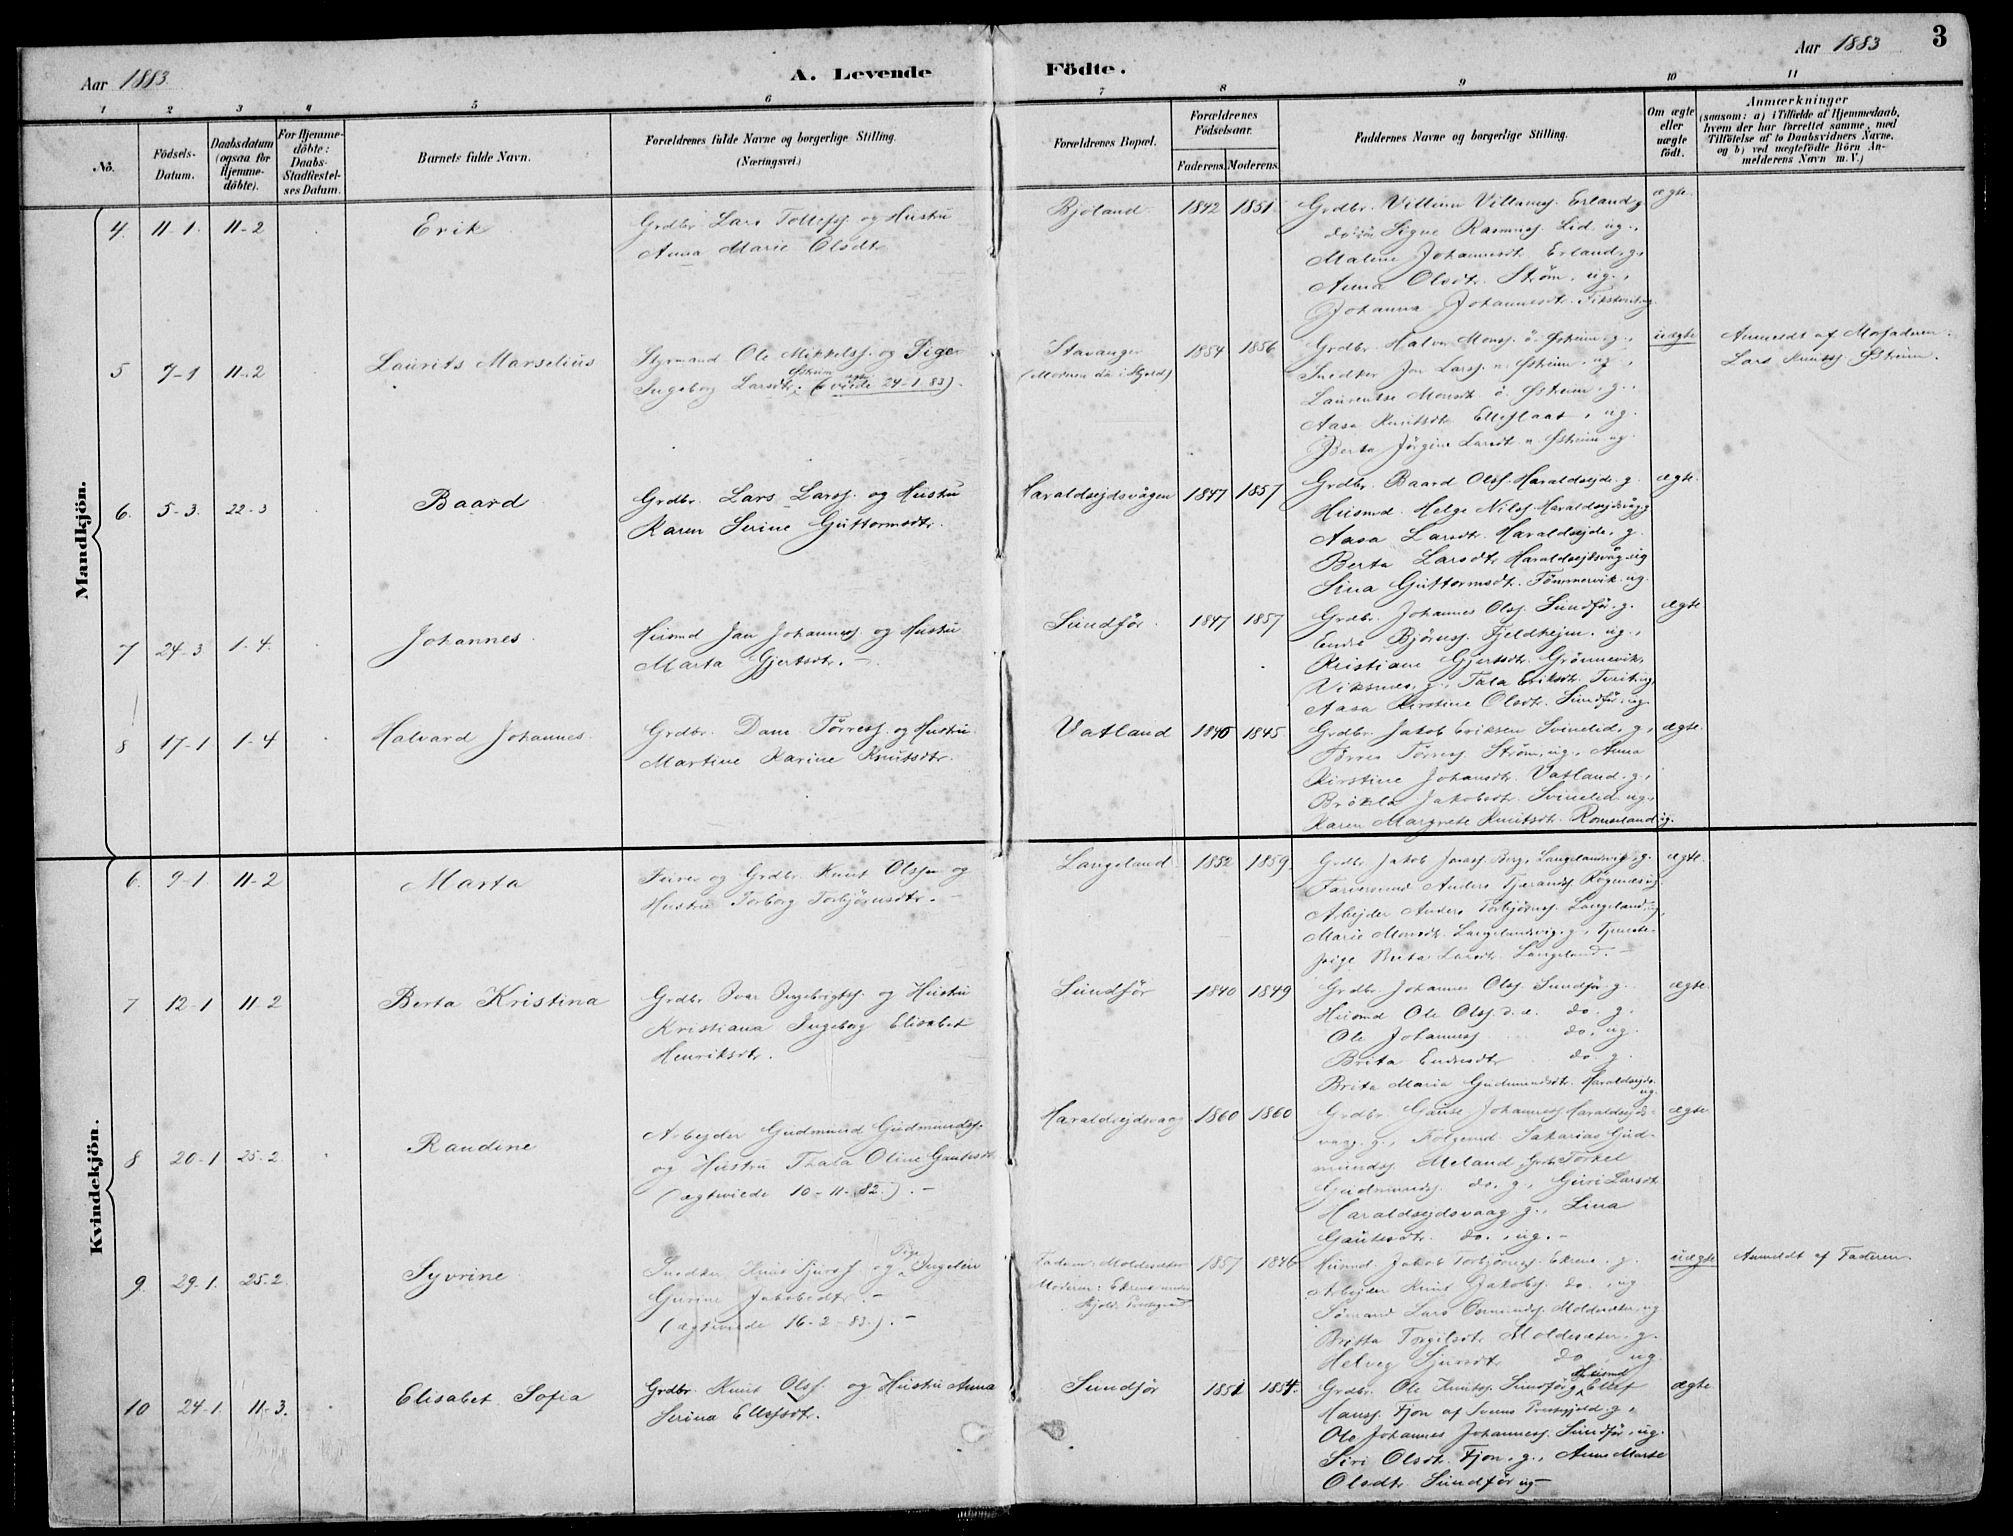 Aar 1883.
A. Levende Födte.
Aar 1883
3
1 2 3 4 5 6 7 8 9 10 11
No.
Födsels-Datum.
Daabsdatum (ogsaa for Hjemmedöbte).
For Hjemmedöbte: Daabs-Stadfæstelses Datum.
Barnets fulde Navn.
Forældrenes fulde Navne og borgerlige Stilling.
(Næringsvei.)
Forældrenes Bopæl.
Forældrenes Födselsaar.
Faderens. Moderens.
Faddernes Navne og borgerlige Stilling.
Om ægte eller uægte födt.
Anmærkninger
(saasom: a) i Tilfælde af Hjemmedaab, hvem der har forrettet samme, med Tilföielse af to Daabsvidners Navne. og b) ved uægtefödte Börn Anmelderens Navn m. V.)
Mandkjön.
4. 11-1. 11-2
Erik
Grdbr. Lars Tollefss. og Hustru
Anna Marie Olsdtr.
Bjoland 1842 1851
Grdbr. Villum Villumss. Erland g
Signe Rasmuss. Lid. ug.,
Malene Johannesdtr. Erland, g,
Anna Olsdtr. Strøm, ug.,
Johanna Johannesdtr.
ægte.
5 7-1 11-2
Laurits Marselius
Styrmand Ole Mikkelss. og Pige
Ingeborg Larsdtr. Østreim (viede 24-1 83).
Stavanger
(Moderen da i Skjold)
1854 1856
Grdbr. Halvor Monss. ö. Østreim, g.,
Snedker Jon Larss. n. Østreim, ug.,
Laurentse Monsdtr. ö. Østreim, g.,
Aasa Knutsdtr. Ellefslaat, ug.
Berta Jörgine Larsdtr. n. Østreim ug.
uægte
Anmeldt af Mofaderen
Lars Knutss. Østreim.
6. 5-3. 22-3
Baard
Grdbr. Lars Larss. og Hustru
Karen Serine Guttormsdtr.
Haraldsejdsvågen 1847 1857
Grdbr. Baard Olss. Haraldsejde. g.
Husmd. Helge Nilss. Haraldsejdsvåg g
Aasa Larsdtr. Haraldsejde, g.
Berta Larsdtr. Haraldsejdsvåg. ug
Sina Guttormsdtr. Tömmervik. ug.
ægte.
7 24-3 1-4.
Johannes.
Husmd Jan Johanness. og Hustru
Marta Gjertsdtr. -
Sundför. 1847 1857
Grdbr. Johannes Olss. Sundför. g.
Endre Björnss. Fjeldhejm. ug.,
Kristiane Gjertsdtr. Grönnevik,
Viksnes, g., Tala Eriksdtr. Tveit ug,
Aasa Kirstine Olsdtr. Sundför, ug.
ægte
8 17-1 1-4
Halvard Johannes.
Grdbr. Dane Tørress. og Hustru
Martine Karine Knutsdtr.
Vatland 1840 1845
Grdbr. Jakob Eriksen Svinelid, g,
Tørres Tørress. Strøm, ug., Anna
Kirstine Johansdtr. Vatland. g,
Jakobsdtr. Svinelid ug.,
Karen Margrete Knutsdtr. Romerland ug.
ægte.
Kvindekjön.
6. 9-1 11-2
Marta
og Grdbr. Knut Olssen og
Hustru Torborg Torbjörnsdtr. -
Langeland. 1852 1859.
Grdbr. Jakob Jonass. Berg, Langelandsvig, g.
Anders Tjerands.
Arbejder Anders Torbjörnss. Langeland, ug,
Marie Monsdtr. Langelandsvig. g., Tjeneste-
pige Brita Larsdtr. Langeland. -
ægte.
7 12-1 11-2
Berta Kristina
Grdbr. Ivar Ingebrigtss. og Hustru
Kristiana Ingeborg Elisabet
Henriksdtr.
Sundför 1840 1849
Grdbr. Johannes Olss. Sundför g.
Husmd Ole Olss. d. æ. do. g.
Ole Johanness. do. ug.
Brita Endresdtr do. g.
Brita Maria Gudmundsdtr. Haraldsejde. ug.
ægte.
8 20-1 25-2
Raudine
Arbejder Gudmund Gudmundss.
og Hustru Thala Oline Gautesdtr.
(ægteviede 10-11-82.). -
Haraldsejdsvaag 1860 1860
Grdbr. Gaute Johanness. Haraldsejds-
vaag. g., Folgemd Sakarias Gud-
mundss. Meland, Grdbr Torkel
Gudmundss. do. g., Guri Larsdtr.
Haraldsejdsvaag. g., Lina
Gautesdtr. do., ug. -
ægte
9. 29-1. 25-2.
Syvrine
Snedker Knut Sjurss. og Pige Ingelin
Gurine Jakobsdtr. -
(ægteviede 16-2-83.). -
Faderen: Moldesæter
Moderen: Ekrene under
Skjolds Prestegaard
1857 1846
Husmd. Jakob Torbjörnss. Ekrene. g.
Arbejder Knut Jakobss. do., ug
Sømand Lars Osmundss. Moldesæter, ug
Britta Torgilsdtr. Moldesæter. g.
Helveg Sjursdtr. do ug.
uægte
Anmeldt af Faderen.
10 24-1. 11-3.
Elisabet Sofia
Grdbr. Knut Olss. og Hustru Anna
Serina Ellefsdtr.
Sundför 1851 1854.
Grdbr. Ole Knutss. Sundför g, Husmd Ellef
Hanss. Fjon af Sveens Prestegjeld. g.,
Ole Johannes Johanness. Sundför, ug.
Siri Olsdtr. Fjon, g., Anne Marta
Olsdtr Sundför ug -
ægte